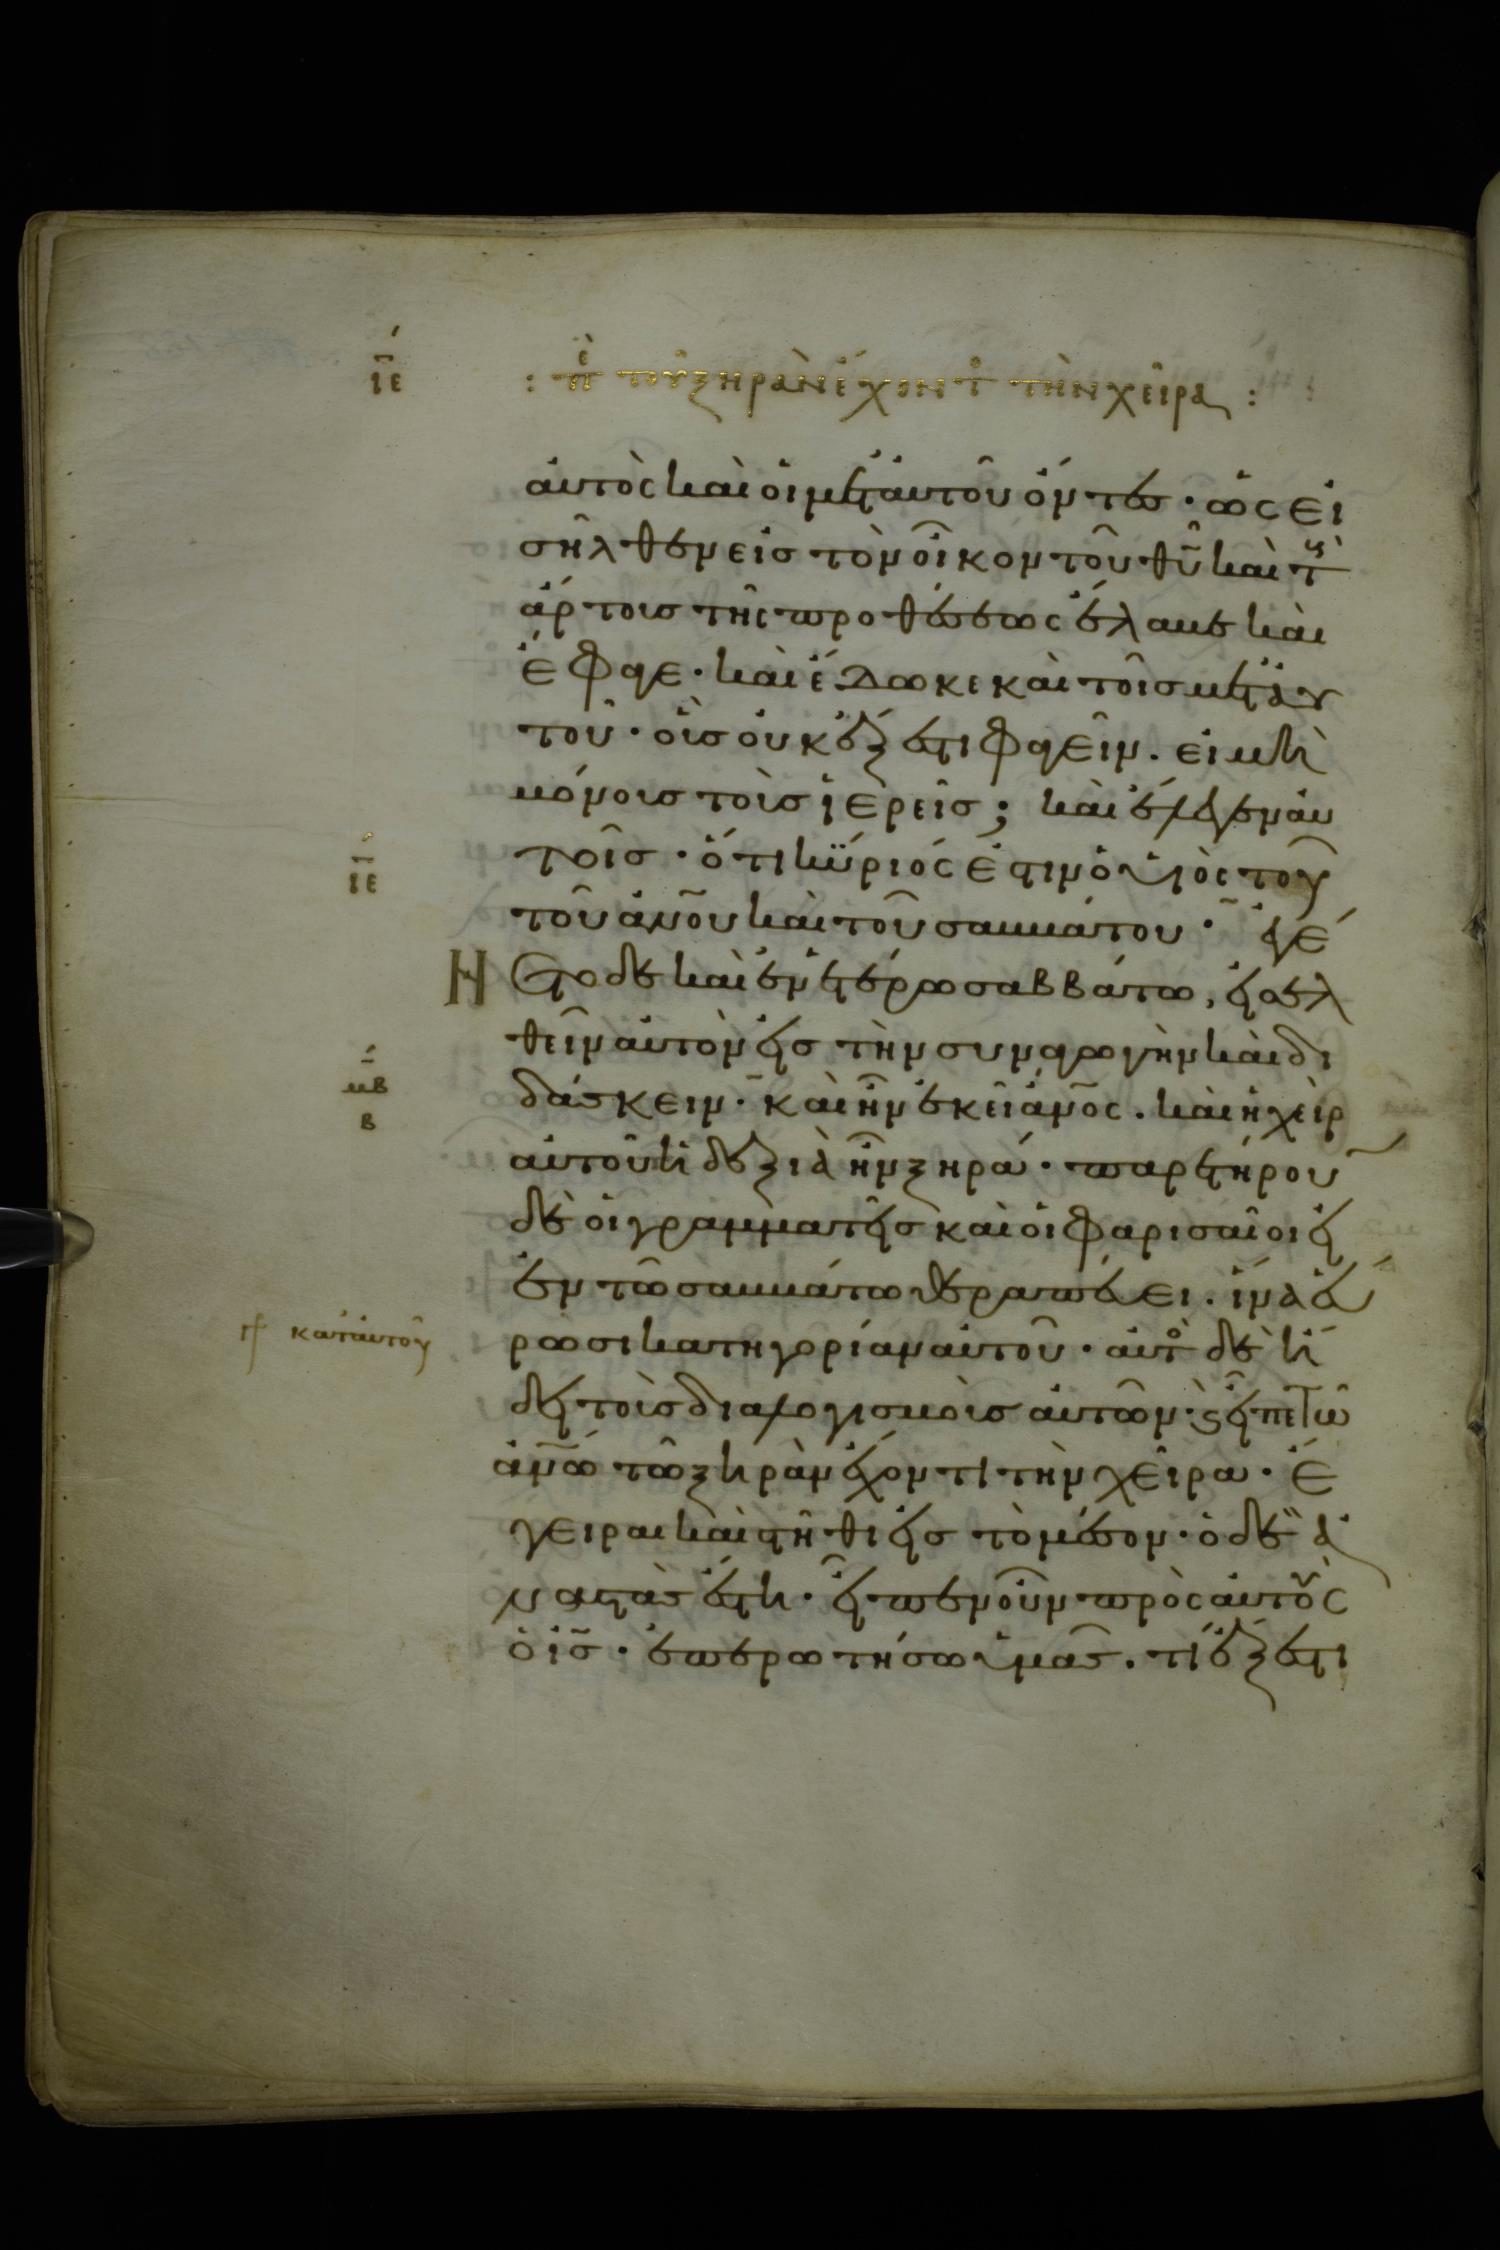 ιε : πε τοῦ ξηρὰν ἔχοντ τὴν χεῖρα :
αὐτὸς καὶ οἱ μετ' αὐτοῦ ὄντες · ὡς εἰ
σῆλθεν εἰς τὸν οἶκον τοῦ θῦ καὶ τοὺς
ἄρτους τῆς προθέσεως ἔλαβε καὶ
ἔφαγε · καὶ ἔδωκε καὶ τοῖς μετ' αὐ
τοῦ · οἷς οὐκ ἔξεστι φαγεῖν . εἰ μὴ
μόνοις τοῖς ἱερεῖς ; καὶ ἔλεγεν αὐ
ιε τοῖς · ὅτι κύριός ἐστιν ὁ υἱὸς τοῦ
τοῦ ἀνου καὶ τοῦ σαββάτου · ἐγέ
νετο δὲ καὶ ἐν ἑτέρω σαββάτω, εἰσελ
θεῖν αὐτὸν εἰς τὴν συναγωγὴν καὶ δι
μβ
β δάσκειν · καὶ ἦν ἐκεῖ ἀνος . καὶ ἡ χεὶρ
αὐτοῦ ἡ δεξιὰ ἦν ξηρά · παρετήρουν
δὲ οἱ γραμματεῖς καὶ οἱ φαρισαῖοι εἰ
ἐν τῶ σαββάτω θεραπεύει . ἵνα εὕ
κατ' αὐτοῦ ρωσι κατηγορίαν αὐτοῦ · αὐτὸς δὲ ἤ
δει τοὺς διαλογισμοὺς αὐτῶν · ϗ εἶπε τῶ
ἀνω τῶ ξηρὰν ἔχοντι τὴν χεῖρα · ἔ
γειραι καὶ στῆθι εἰς τὸ μέσον · ὁ δὲ ἀ
ναστὰς ἔστη · εἶπεν οὖν πρὸς αὐτοὺς
ὁ ις · ἐπερωτήσω ὑμᾶς . τί ἔξεστι